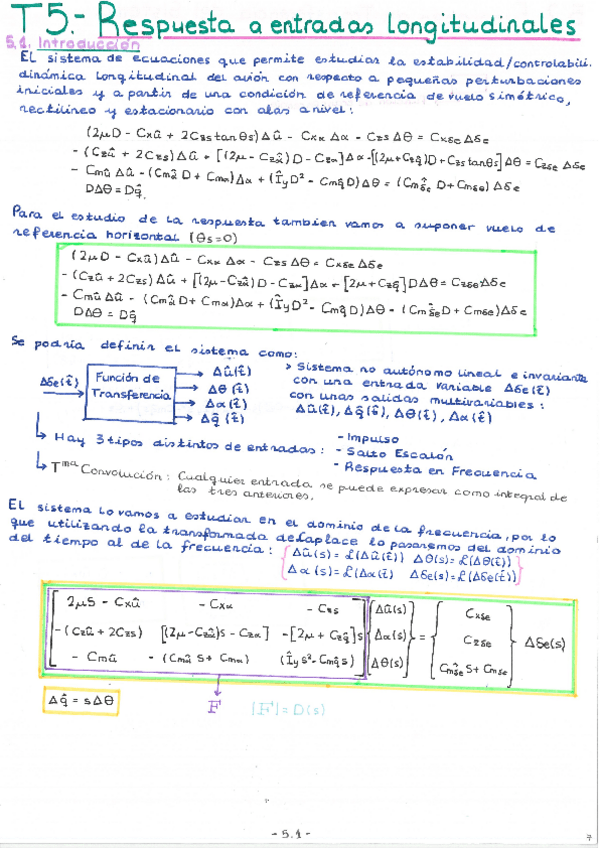 T5.- Respuesta a entradas longitudinales
5.1. Introducción
El sistema de ecuaciones que permite estudiar la estabilidad/controlabili.
dinámica longitudinal del avión con respecto a pequeñas perturbaciones
iniciales y a partir de una condición de referencia de vuelo simétrico,
rectilíneo y estacionario con alas a nivel:
(2μD - Cxû + 2Czs tanθs)Δû - Cxα Δα - Czs Δθ = Cxδe Δδe
- (Czû + 2Czs)Δû + [(2μ - Czα̂)D - Czα]Δα - [(2μ + Czq̂)D + Czs tanθs]Δθ = Czδe Δδe
- Cmû Δû - (Cmα̂ D + Cmα)Δα + (Îy D² - Cmq̂ D)Δθ = (Cmδ̂e D + Cmδe)Δδe
DΔθ = Dq̂.
Para el estudio de la respuesta tambien vamos a suponer vuelo de
referencia horizontal (θs=0)
(2μD - Cxû)Δû - Cxα Δα - Czs Δθ = Cxδe Δδe
- (Czû + 2Czs)Δû + [(2μ - Czα̂)D - Czα]Δα - [2μ + Czq̂]DΔθ = Czδe Δδe
- Cmû Δû - (Cmα̂ D + Cmα)Δα + (Îy D² - Cmq̂ D)Δθ = (Cmδ̂e D + Cmδe)Δδe
DΔθ = Dq̂
Se podría definir el sistema como:
Δδe(t̂)
Función de
Transferencia
Δû(t̂)
Δθ(t̂)
Δα(t̂)
Δq̂(t̂)
> Sistema no autónomo lineal e invariante
con una entrada variable Δδe(t̂)
con unas salidas multivariables:
Δû(t̂), Δq̂(t̂), Δθ(t̂), Δα(t̂)
↳ Hay 3 tipos distintos de entradas:
- Impulso
- Salto Escalón
- Respuesta en Frecuencia
↳ Tma Convolución: Cualquier entrada se puede expresar como integral de
las tres anteriores.
El sistema lo vamos a estudiar en el dominio de la frecuencia, por lo
que utilizando la transformada de Laplace lo pasaremos del dominio
del tiempo al de la frecuencia:
Δû(s) = ℒ(Δû(t̂)) Δθ(s) = ℒ(Δθ(t̂))
Δα(s) = ℒ(Δα(t̂) Δδe(s) = ℒ(Δδe(t̂))
2μS - Cxû - Cxα - Czs Δû(s) Cxδe
- (Czû + 2Czs) [(2μ - Czα̂)S - Czα] - [2μ + Czq̂]s Δα(s) = Czδe Δδe(s)
- Cmû - (Cmα̂ S + Cmα) (Îy S² - Cmq̂ s) Δθ(s) Cmδ̂e S + Cmδe
Δq̂ = sΔθ
F
|F| = D(s)
- 5.1 -